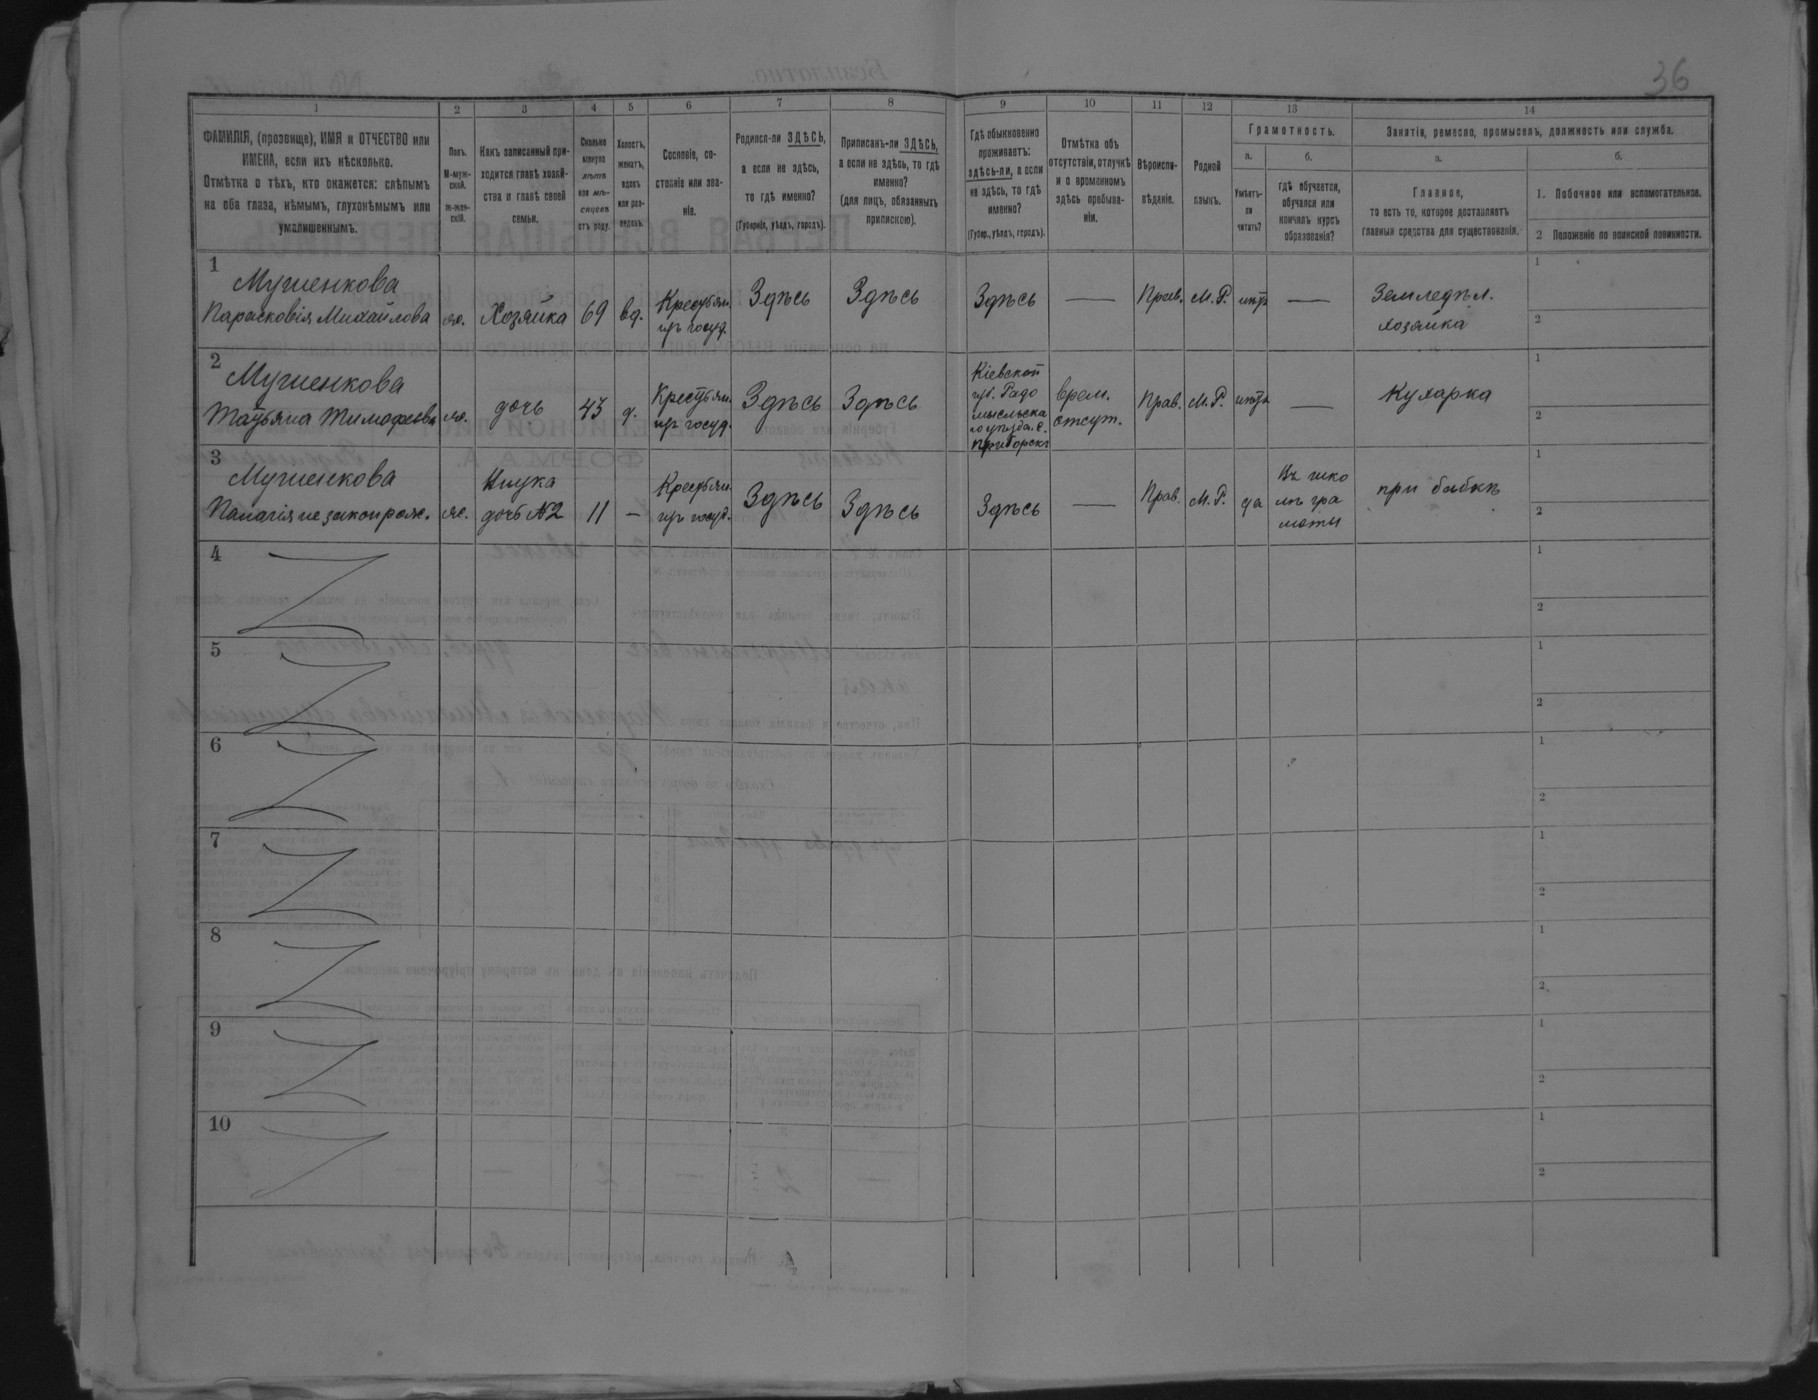 36
1 2 3 4 5 6 7 8 9 10 11 12 13 14
ФАМИЛІЯ, (прозвище), ИМЯ и ОТЧЕСТВО или
ИМЕНА, если ихъ нѣсколько.
Отмѣтка о тѣхъ, кто окажется: слѣпымъ
на оба глаза, нѣмымъ, глухонѣмымъ или
умалишеннымъ.
Полъ.
М-муж-
ской.
ж-жен-
скій.
Какъ записанный при-
ходится главѣ хозяй-
ства и главѣ своей
семьи.
Сколько
минуло
лѣтъ
или мѣ-
сяцевъ
отъ роду.
Холостъ,
женатъ,
вдовъ
или раз-
веденъ.
Сословіе, со-
стояніе или зва-
ніе.
Родился-ли ЗДѢСЬ,
а если не здѣсь,
то гдѣ именно?
(Губернія, уѣздъ, городъ).
Приписанъ-ли ЗДѢСЬ,
а если не здѣсь, то гдѣ
именно?
(для лицъ, обязанныхъ
припискою).
Гдѣ обыкновенно
проживаетъ:
здѣсь-ли, а если
не здѣсь, то гдѣ
именно?
(Губер., уѣздъ, городъ).
Отмѣтка объ
отсутствіи, отлучкѣ
и о временномъ
здѣсь пребыва-
ніи.
Вѣроиспо-
вѣданіе.
Родной
языкъ.
Грамотность.
а.
Умѣетъ-
ли
читать?
б.
гдѣ обучается,
обучался или
кончилъ курсъ
образованія?
Занятіе, ремесло, промыселъ, должность или служба.
а.
Главное,
то есть то, которое доставляетъ
главныя средства для существованія.
б.
1. Побочное или вспомогательное.
2 Положеніе по воинской повинности.
1
Парасковія Михайлова
ж.
Хозяйка
69
вд.
Крестьян.
изъ госуд.
Здѣсь
Здѣсь
Здѣсь
—
Прав.
М. Р.
нѣтъ
—
Земледѣл.
хозяйка
1
2
2
Татьяна Тимофеева
ж.
дочь
43
д.
Крестьян.
изъ госуд.
Здѣсь
Здѣсь
Кіевской
губ. Радо
мысльска
го уѣзда. с.
врем.
отсут.
Прав.
М. Р.
нѣтъ
—
Кухарка
1
2
3
Палагія незаконрож.
ж.
Внука
дочь №2
11
—
Крестьян.
изъ госуд.
Здѣсь
Здѣсь
Здѣсь
—
Прав.
М. Р.
да
Въ шко
лѣ гра
моты
при бабкѣ
1
2
4
1
2
5
1
2
6
1
2
7
1
2
8
1
2
9
1
2
10
1
2